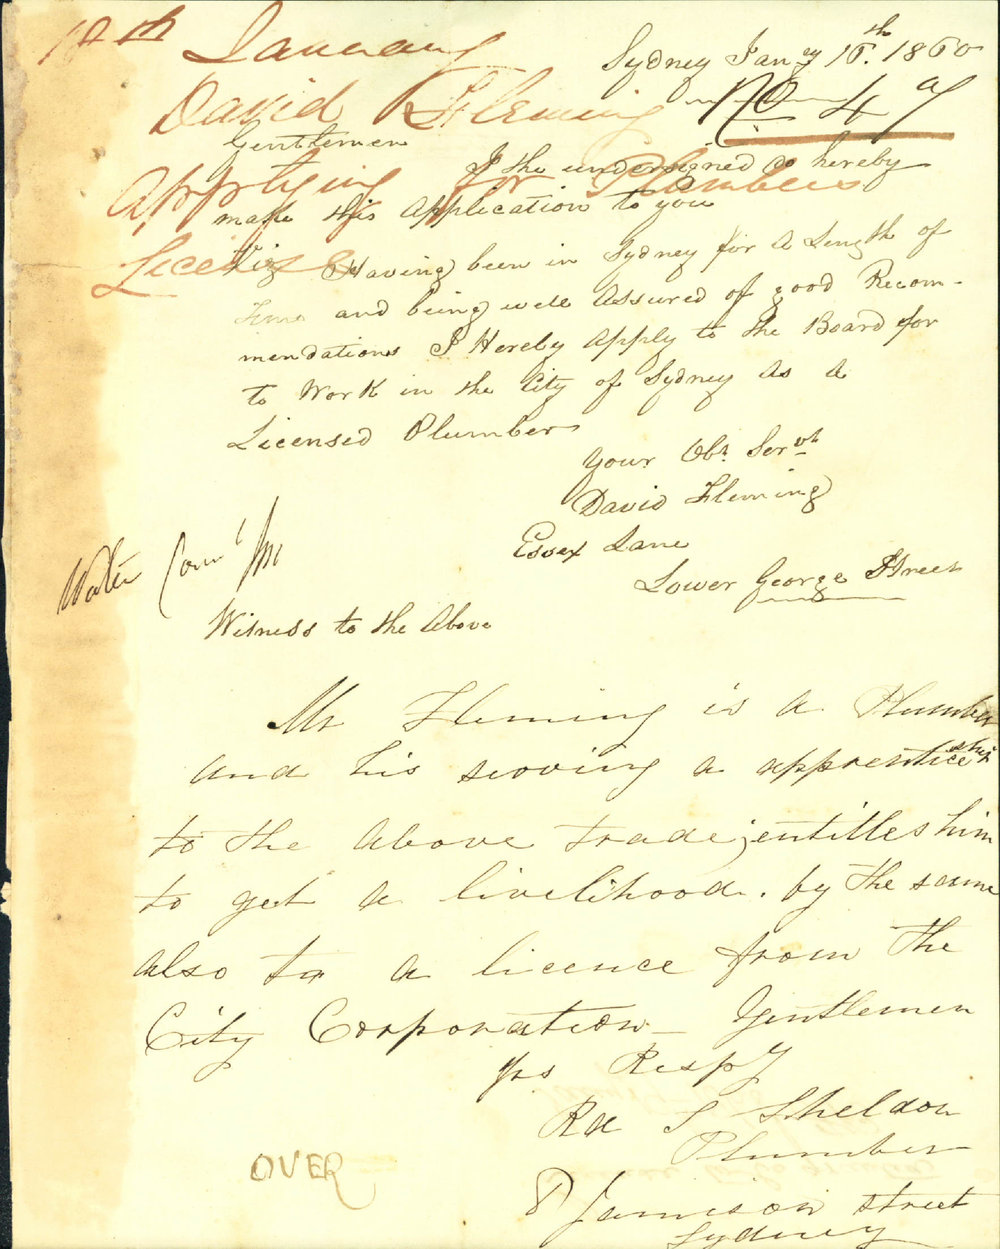 17th January
David Fleming
Applying for Plumbers
License
Sydney Jany 16th. 1860
No 47
Gentlemen
I the undersigned do hereby
make this Application to you
Viz Having been in Sydney for a Length of
Time and being well Assured of good Recom-
mendations I Hereby Apply to the Board for
to Work in the City of Sydney as a
Licensed Plumber
Your Obt Servt
David Fleming
Essex Lane
Lower George Street
Water Comt
Witness to the Above
Mr Fleming is a Plumber
and his serving a apprenticeship
to the above trade; entitles him
to get a livelihood. by the same
also to a licence from the
City Corporation— Gentlemen
Yrs Respy
Sheldon
Plumber
Jamison street
Sydney
OVER